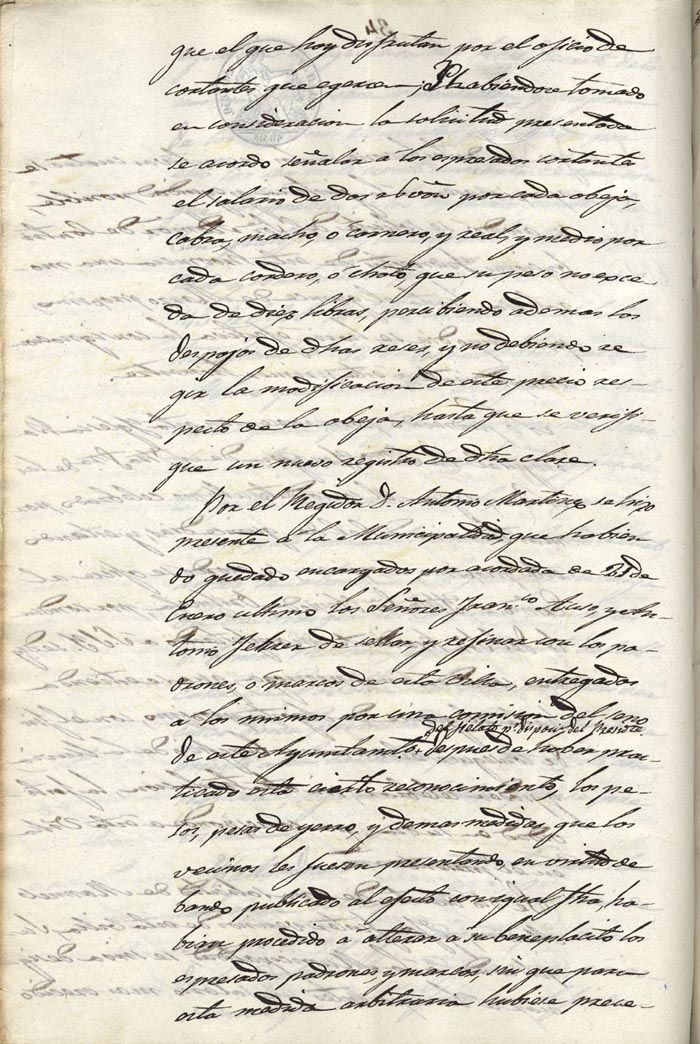 34
que el que hoy disfrutan por el oficio de
cortantes que egercen; Y habiendose tomado
en consideracion la solicitud presentada
se acordo señalar á los espresados cortantes
el salario de dos r.s von por cada obeja,
cabra, macho, ó carnero, y real, y medio por
cada cordero, ó choto, que su peso no exce-
da de diez libras, percibiendo ademas los
despojos de dhas reses, y no debiendo re
gir la modificacion de este precio res-
pecto de la obeja, hasta que se verifi-
que un nuevo registro de dha clase.
Por el Regidor D. Antonio Martinez se hizo
presente á la Municipalidad, que habien
do quedado encargados por acordada de 21 de
Enero ultimo los Señores Fran.co y An-
tonio de sellar, y refinar con los pa-
drones, ó marcos de esta Villa, entregados
á los mismos por una comision del seno
de este Ayuntamto, despues de haber prac
ticado esta cierto reconocimiento, los pe-
sos, pesas de yerro, y demas medidas, que los
vecinos les fuesen presentando, en virtud de
bando publicado al efecto con igual fha, ha-
bian procedido á alterar a su beneplacito los
espresados padrones y marcos, sin que para
esta medida arbitraria hubiese prece-